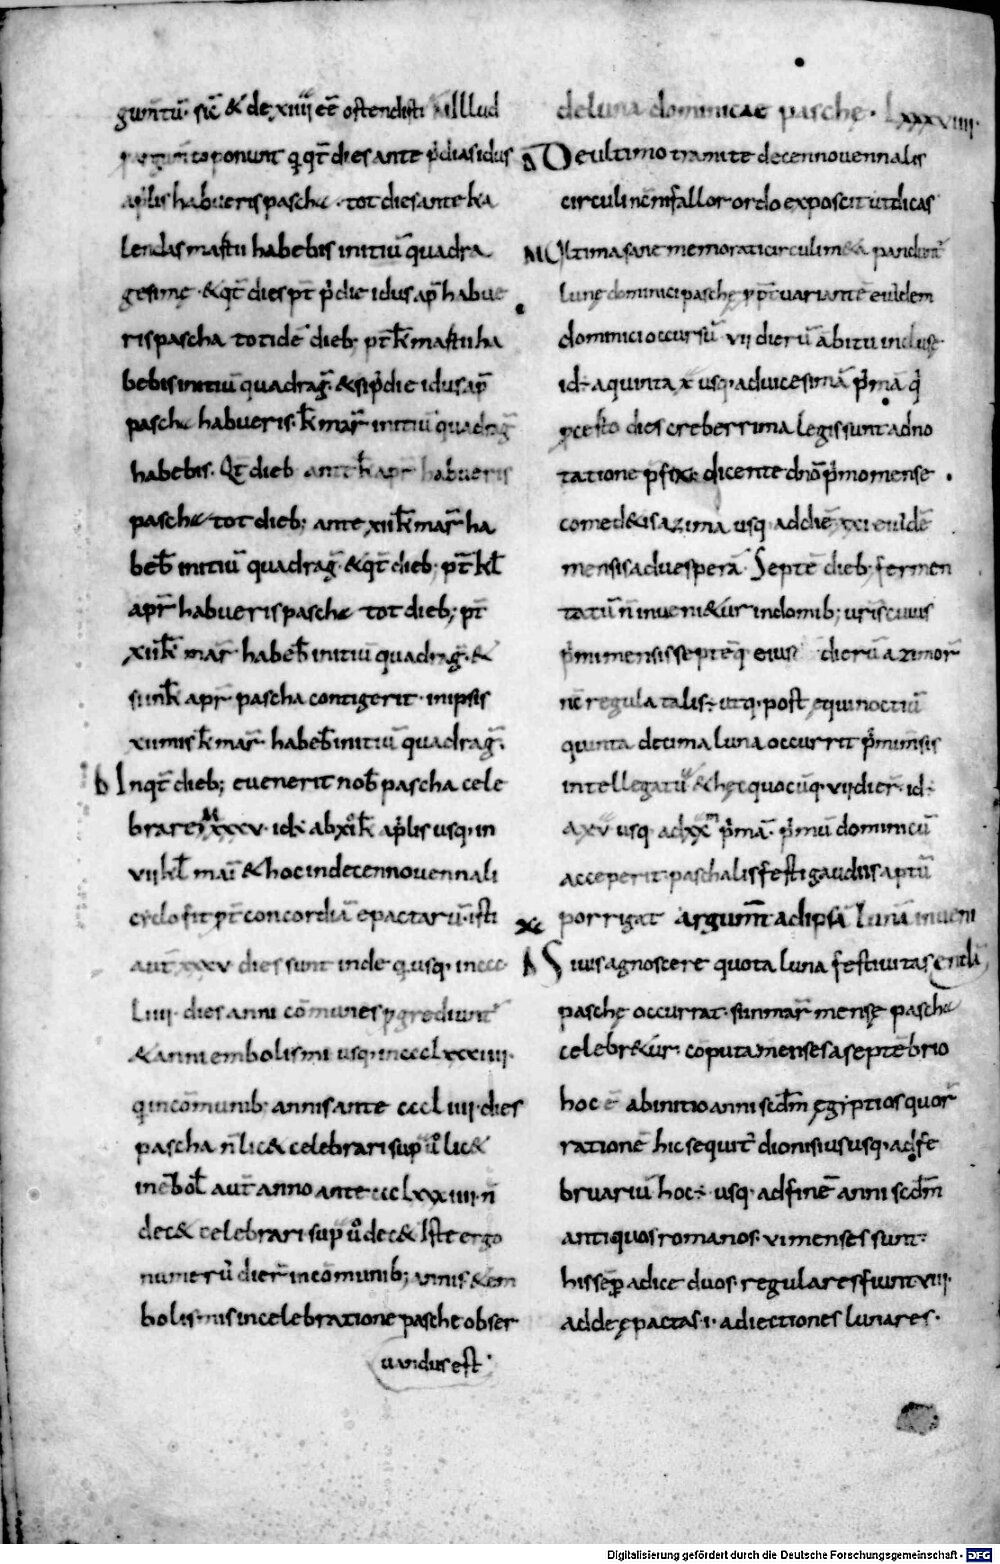 guntũ. sic̃ & de xiiii eẽ ostendisti illud
ponunt q̃ qt̃ dies ante pdias idus
aplis habueris pasche. tot dies ante ka
lendas martii habebis initiũ quadra
gesime. & qt̃ dies pt̃ p̃die idus ap̃ habue
ris pascha totidẽ dieb; pt̃ k̃ martii ha
bebis initiũ quadrag̃. & si p̃die idus ap̃
pasche habueris. k̃ mar̃ initiũ quadrag̃
habebis. Qt̃ dieb ante k̃ apr̃ habueris
pasche tot dieb; ante xii k̃ mar̃ ha
beb̃ initiũ quadrag̃. & qt̃ dieb; pt̃ kl̃
apr̃ habueris pasche tot dieb; pt̃
xii k̃ mar̃ habeb̃ initiũ quadrag̃. &
si in k̃ apr̃ pascha contigerit. in ipsis
xii mis k̃ mar̃ habeb̃ initiũ quadrag̃.
b In qt̃ dieb; evenerit nob̃ pascha cele
brare xxxv. id÷ ab xi k̃ ap̃lis usq; in
vii kl̃ mai & hoc in decennovennali
cyclo fit pt̃ concordiã epactarũ. isti
aut̃ xxxv dies sunt inde q̃ usq; in ccc
Liiii. dies anni cõmunes p̱grediunt̃
& anni embolismi usq; in ccclxxxiiii.
q̃ in cõmunib; annis ante cccliiii. dies
pascha ñ lic& celebrari sup ṽ lic&
in ẽbol̃ aut̃ anno ante ccclxxxiiii. ñ
dec& celebrari sup ṽ dec& Iste ergo
numerũ dier̃ in cõmunib; annis & em
bolismis in celebratione pasche obser
uandus est.
de luna dominicae pasche. Lxxxviiii.
Δ De ultimo tramite decennovennalis
circuli nẽ ni fallor ordo exposcit ut dicas
M Ultima sane memorati circuli m&a pandunt̃
lune dominici pasche p̱ pt̃ variantẽ euidem
dominici occursũ vii dierũ ãbitu induse
id÷ a quinta x usq; ad uicesimã p̃mã q̃
p̱cesto dies creberrima legis sunt adno
tatione p̃fixe dicente dño p̃mo mense
comed&is azima usq; ad diẽ xxi euidẽ
mensis ad uesperã. Septẽ dieb; fermen
tatũ ñ inueni&ur in domib; uris̃ cuius
p̃mi mensis septẽq; eius dierũ azimor̃
nc̃ regula talis÷ utq; post equinoctiũ
quinta decima luna occurrit p̃mi m̃sis
intellegatũ & hec quocũq; vii dier̃. id÷
a xv usq; ad xx p̃mã. p̃mũ dominicũ
acceperit. paschalis festi gaudiis aptũ
porrigat argum̃ ad ipsã lunã inueni
xc Δ Si uis agnoscere quota luna festiuitas endã
pasche occurrat. si in mar̃ mense pasche
celebr&ur. cõputa menses a septẽbrio
hoc ẽ ab initio anni scdm̃ egiptios quor̃
rationẽ hic sequit̃ dionisius usq; ad fe
bruariũ hoc÷ usq; ad finẽ anni scdm̃
antiquos romanos. vi menses sunt.
his sẽp adice duos. regulares fiunt viii.
adde epactas. i. adiectiones lunares.